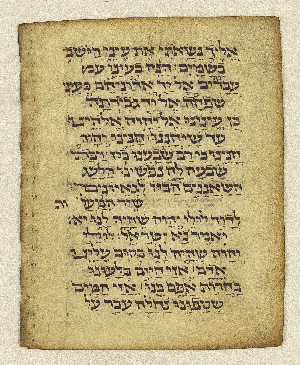 אליך נשאתי את עיני הישבי
בשמים הנה כעיני
עבדים אל יד אדוניהם כעיני
שפחה אל יד גבירתה
כן עינינו אל יהוה אלהינו
עד שיחננו חננו יהוה
חננו כי רב שבענו בוז רבת
שבעה לה נפשנו הלעג
השאננים הבוז לגאיונים
שיר המעל
לולי יהוה שהיה לנו יא
יאמר נא ישראל לולי
יהוה שהיה לנו בקום עלינו
אדם אזי חיים בלעונו
בחרות אפם בנו אזי המים
שטפונו נחלה עבר על